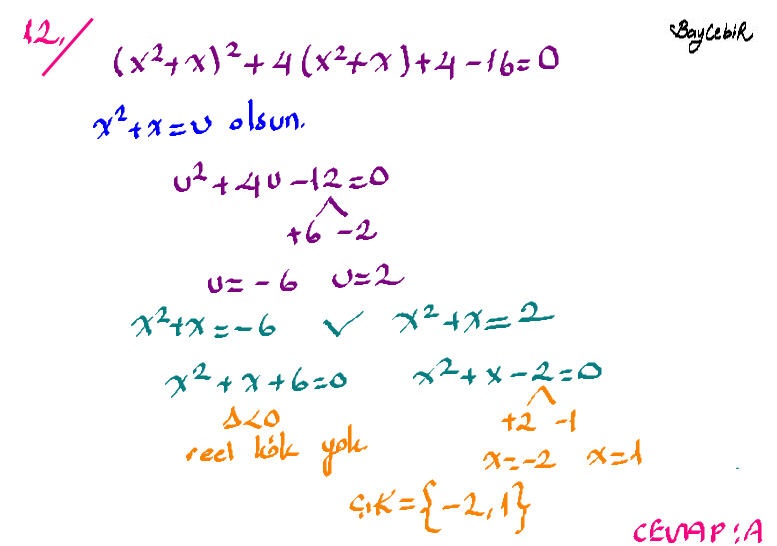 12.
BayCebiR
(x²+x)²+4(x²+x)+4-16=0
x²+x=u olsun.
u²+4u-12=0
+6 -2
u=-6 u=2
x²+x=-6 ✓ x²+x=2
x²+x+6=0 x²+x-2=0
Δ<0 +2 -1
reel kök yok x=-2 x=1
Ç.K={-2,1}
CEVAP:A